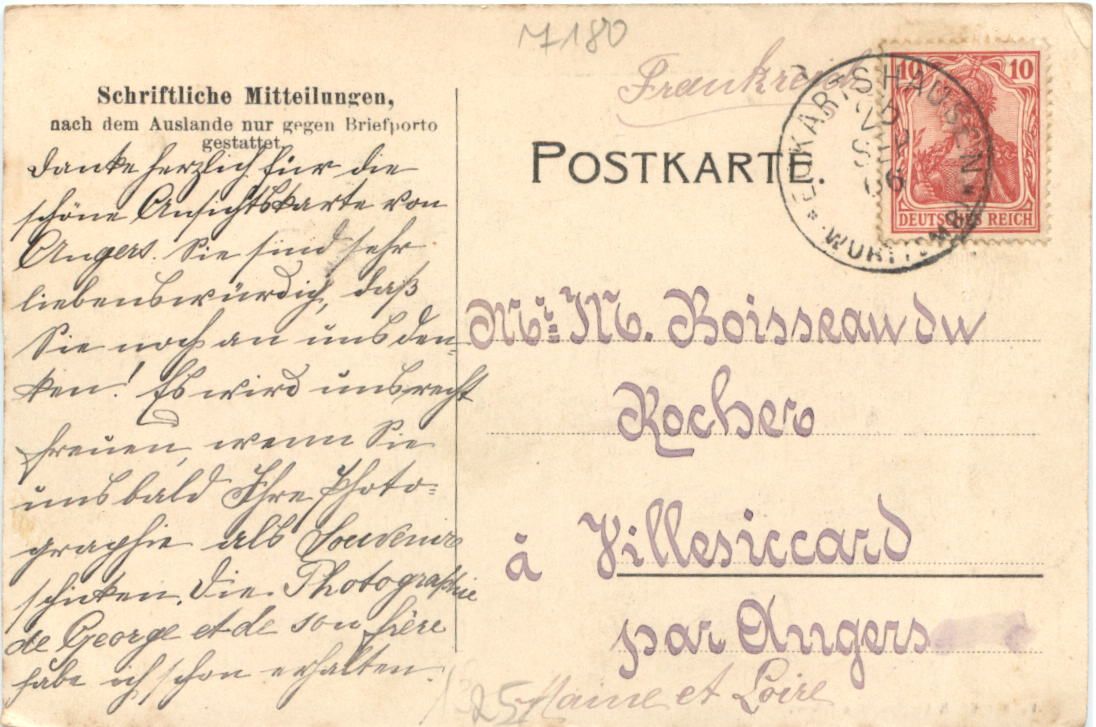 M 180
Frankreich
Schriftliche Mitteilungen,
nach dem Auslande nur gegen Briefporto
gestattet.
Danke herzlich für die
schöne Ansichtskarte von
Angers. Sie sind sehr
liebenswürdig, daß
Sie noch an uns den-
ken! Es wird uns recht
freuen, wenn Sie
uns bald Ihre Photo=
graphie als Souvenir
schicken. Die Photographie
de George et de son frère
habe ich schon erhalten.
POSTKARTE.
10 10
DEUTSCHES REICH
ECKARTSHAUSEN
WÜRTTEMB
Mr. M. Boisseau du
Rocher
à Villesiccard
par Angers
Maine et Loire